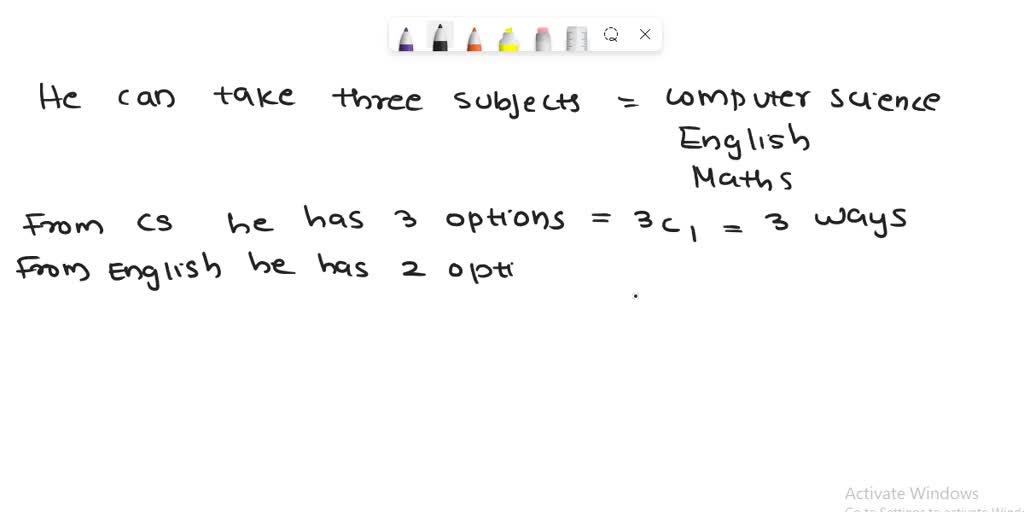 He can take three subjects = Computer science
English
Maths
From CS he has 3 options = 3C1 = 3 ways
From English he has 2 opti
Activate Windows
Go to Settings to activate Windo